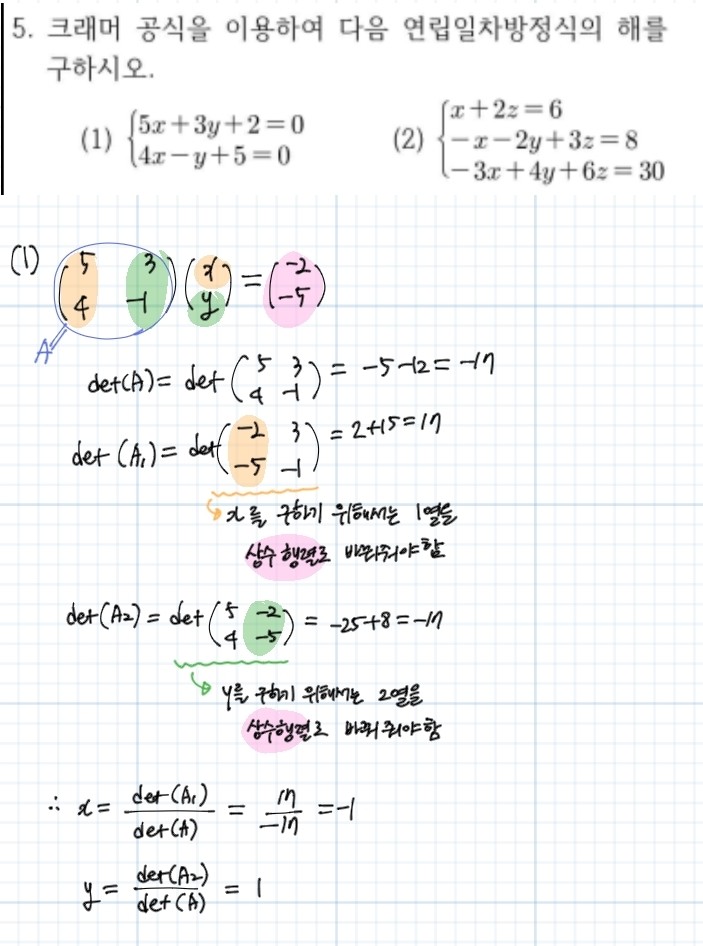 5. 크래머 공식을 이용하여 다음 연립일차방정식의 해를
구하시오.
(1) {5x+3y+2=0
4x−y+5=0
(2) {x+2z=6
−x−2y+3z=8
−3x+4y+6z=30
(1) (5 3
4 -1) (x
y) = (-2
-5)
A
det(A) = det (5 3
4 -1) = -5-12 = -17
det(A₁) = det (-2 3
-5 -1) = 2+15 = 17
x를 구하기 위해서는 1열을
상수 행렬로 바꿔줘야 함
det(A₂) = det (5 -2
4 -5) = -25+8 = -17
y를 구하기 위해서는 2열을
상수행렬로 바꿔 줘야 함
∴ x = det(A₁) / det(A) = 17 / -17 = -1
y = det(A₂) / det(A) = 1